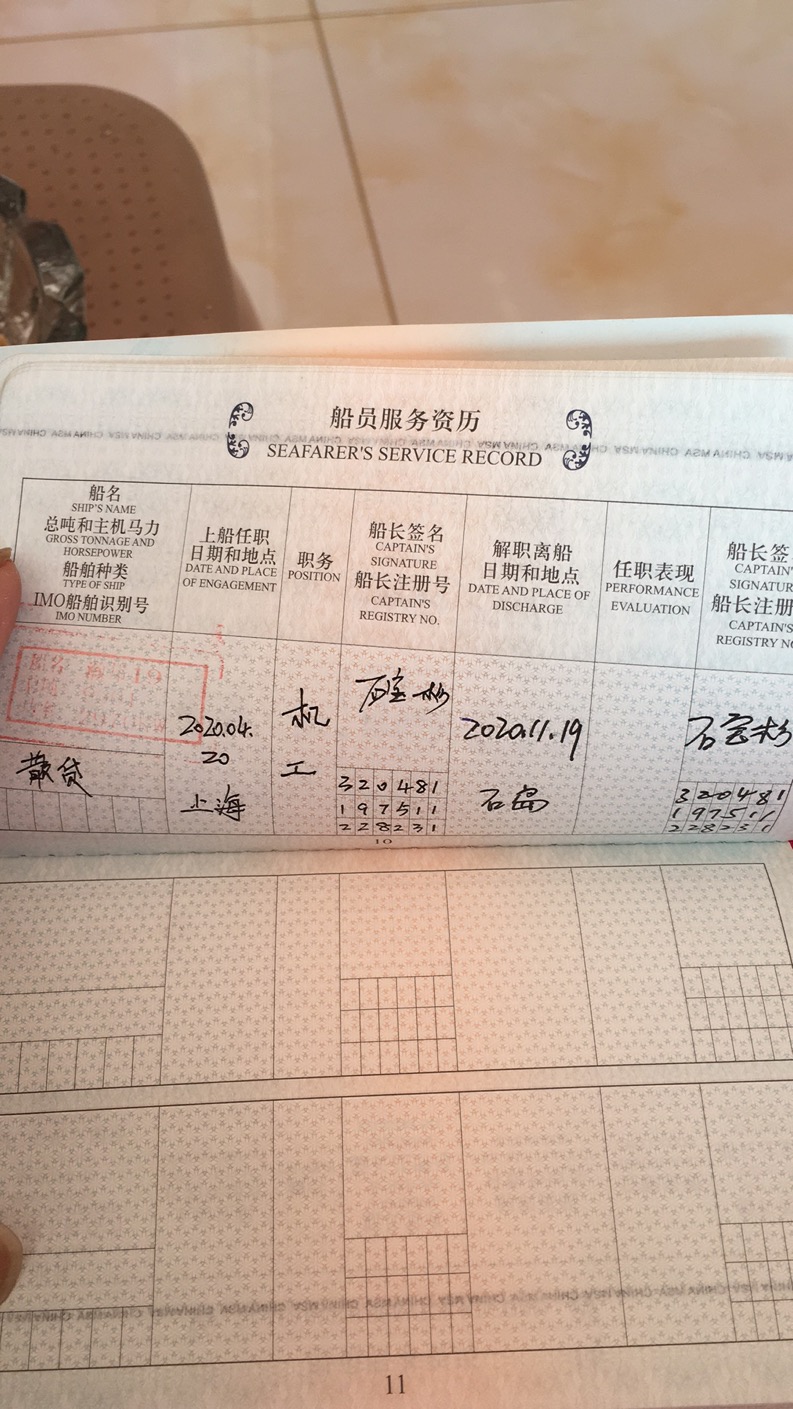 船员服务资历
SEAFARER'S SERVICE RECORD
船名
SHIP'S NAME
总吨和主机马力
GROSS TONNAGE AND
HORSEPOWER
船舶种类
TYPE OF SHIP
IMO船舶识别号
IMO NUMBER
上船任职
日期和地点
DATE AND PLACE
OF ENGAGEMENT
职务
POSITION
船长签名
CAPTAIN'S
SIGNATURE
船长注册号
CAPTAIN'S
REGISTRY NO.
解职离船
日期和地点
DATE AND PLACE OF
DISCHARGE
任职表现
PERFORMANCE
EVALUATION
船长签
CAPTAIN'S
SIGNATUR
船长注册
CAPTAIN'S
REGISTRY NO
船名
19
散货
2020.04.
20
上海
机
工
320481
197511
228231
2020.11.19
石岛
320481
197511
228231
10
11